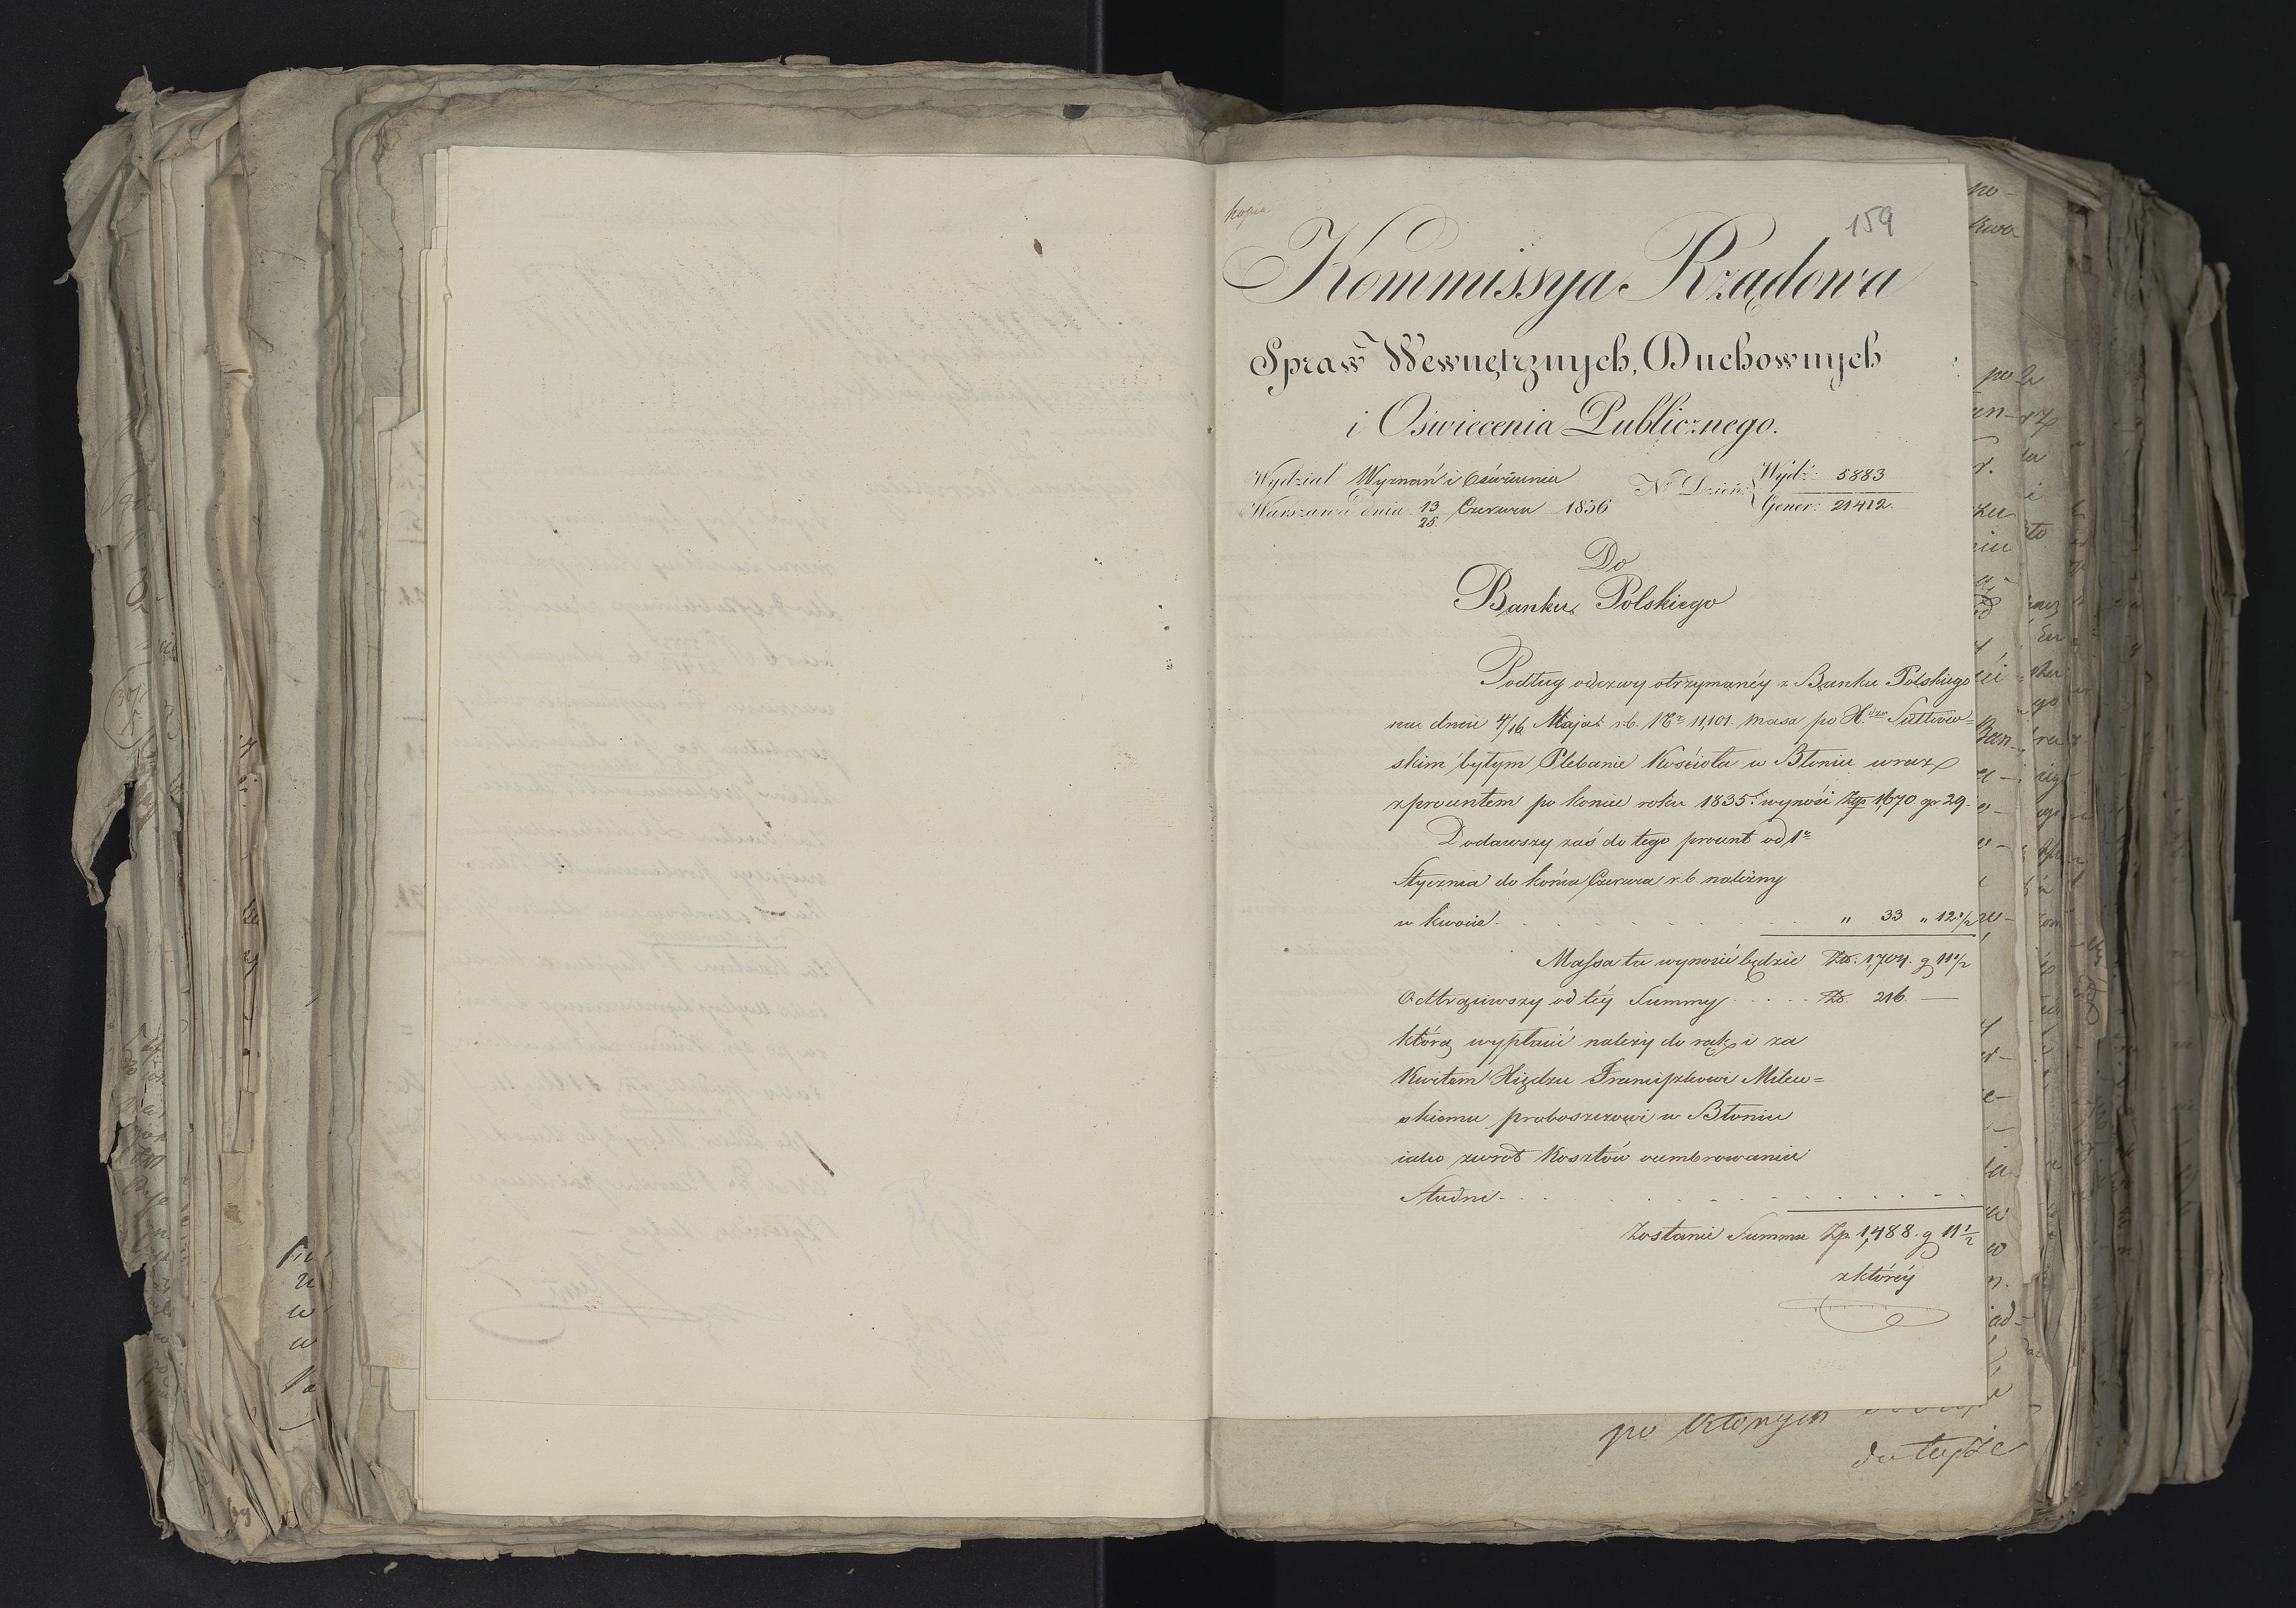 kopia
159
Kommissya Rządowa
Spraw Wewnętrznych, Duchownych
i Oświecenia Publicznego.
Wydział Wyznań i Oświecenia
Warszawa dnia 13/25 Czerwca 1836
N° Dzień: Wydz: 5883
Gener: 21412.
Do
Banku Polskiego
Podług odezwy otrzymanéy z Banku Polskiego
na dniu 4/16 Maja r. b. N° 11,101. masa po X.
skim byłym Plebanie Kościoła w Błoniu wraz
z procentem po koniec roku 1835. wynosi Złp 1,670. gr 29.
Dodawszy zaś do tego procent od 1°
Stycznia do końca Czerwca r. b. należny
w kwocie . . . " 33 " 12 1/2
Massa ta wynosić będzie Zł: 1,704. g 11 1/2
Odtrąciwszy od téy Summy . . . . Zł. 216. —
którą wypłacić należy do rąk i za
Kwitem Xiędzu Franciszkowi Milew=
skiemu proboszczowi w Błoniu
iako zwrot Kosztów ocembrowania
Studni . . .
Zostanie Summa Zp. 1,488. g 11 1/2
z któréy
po których